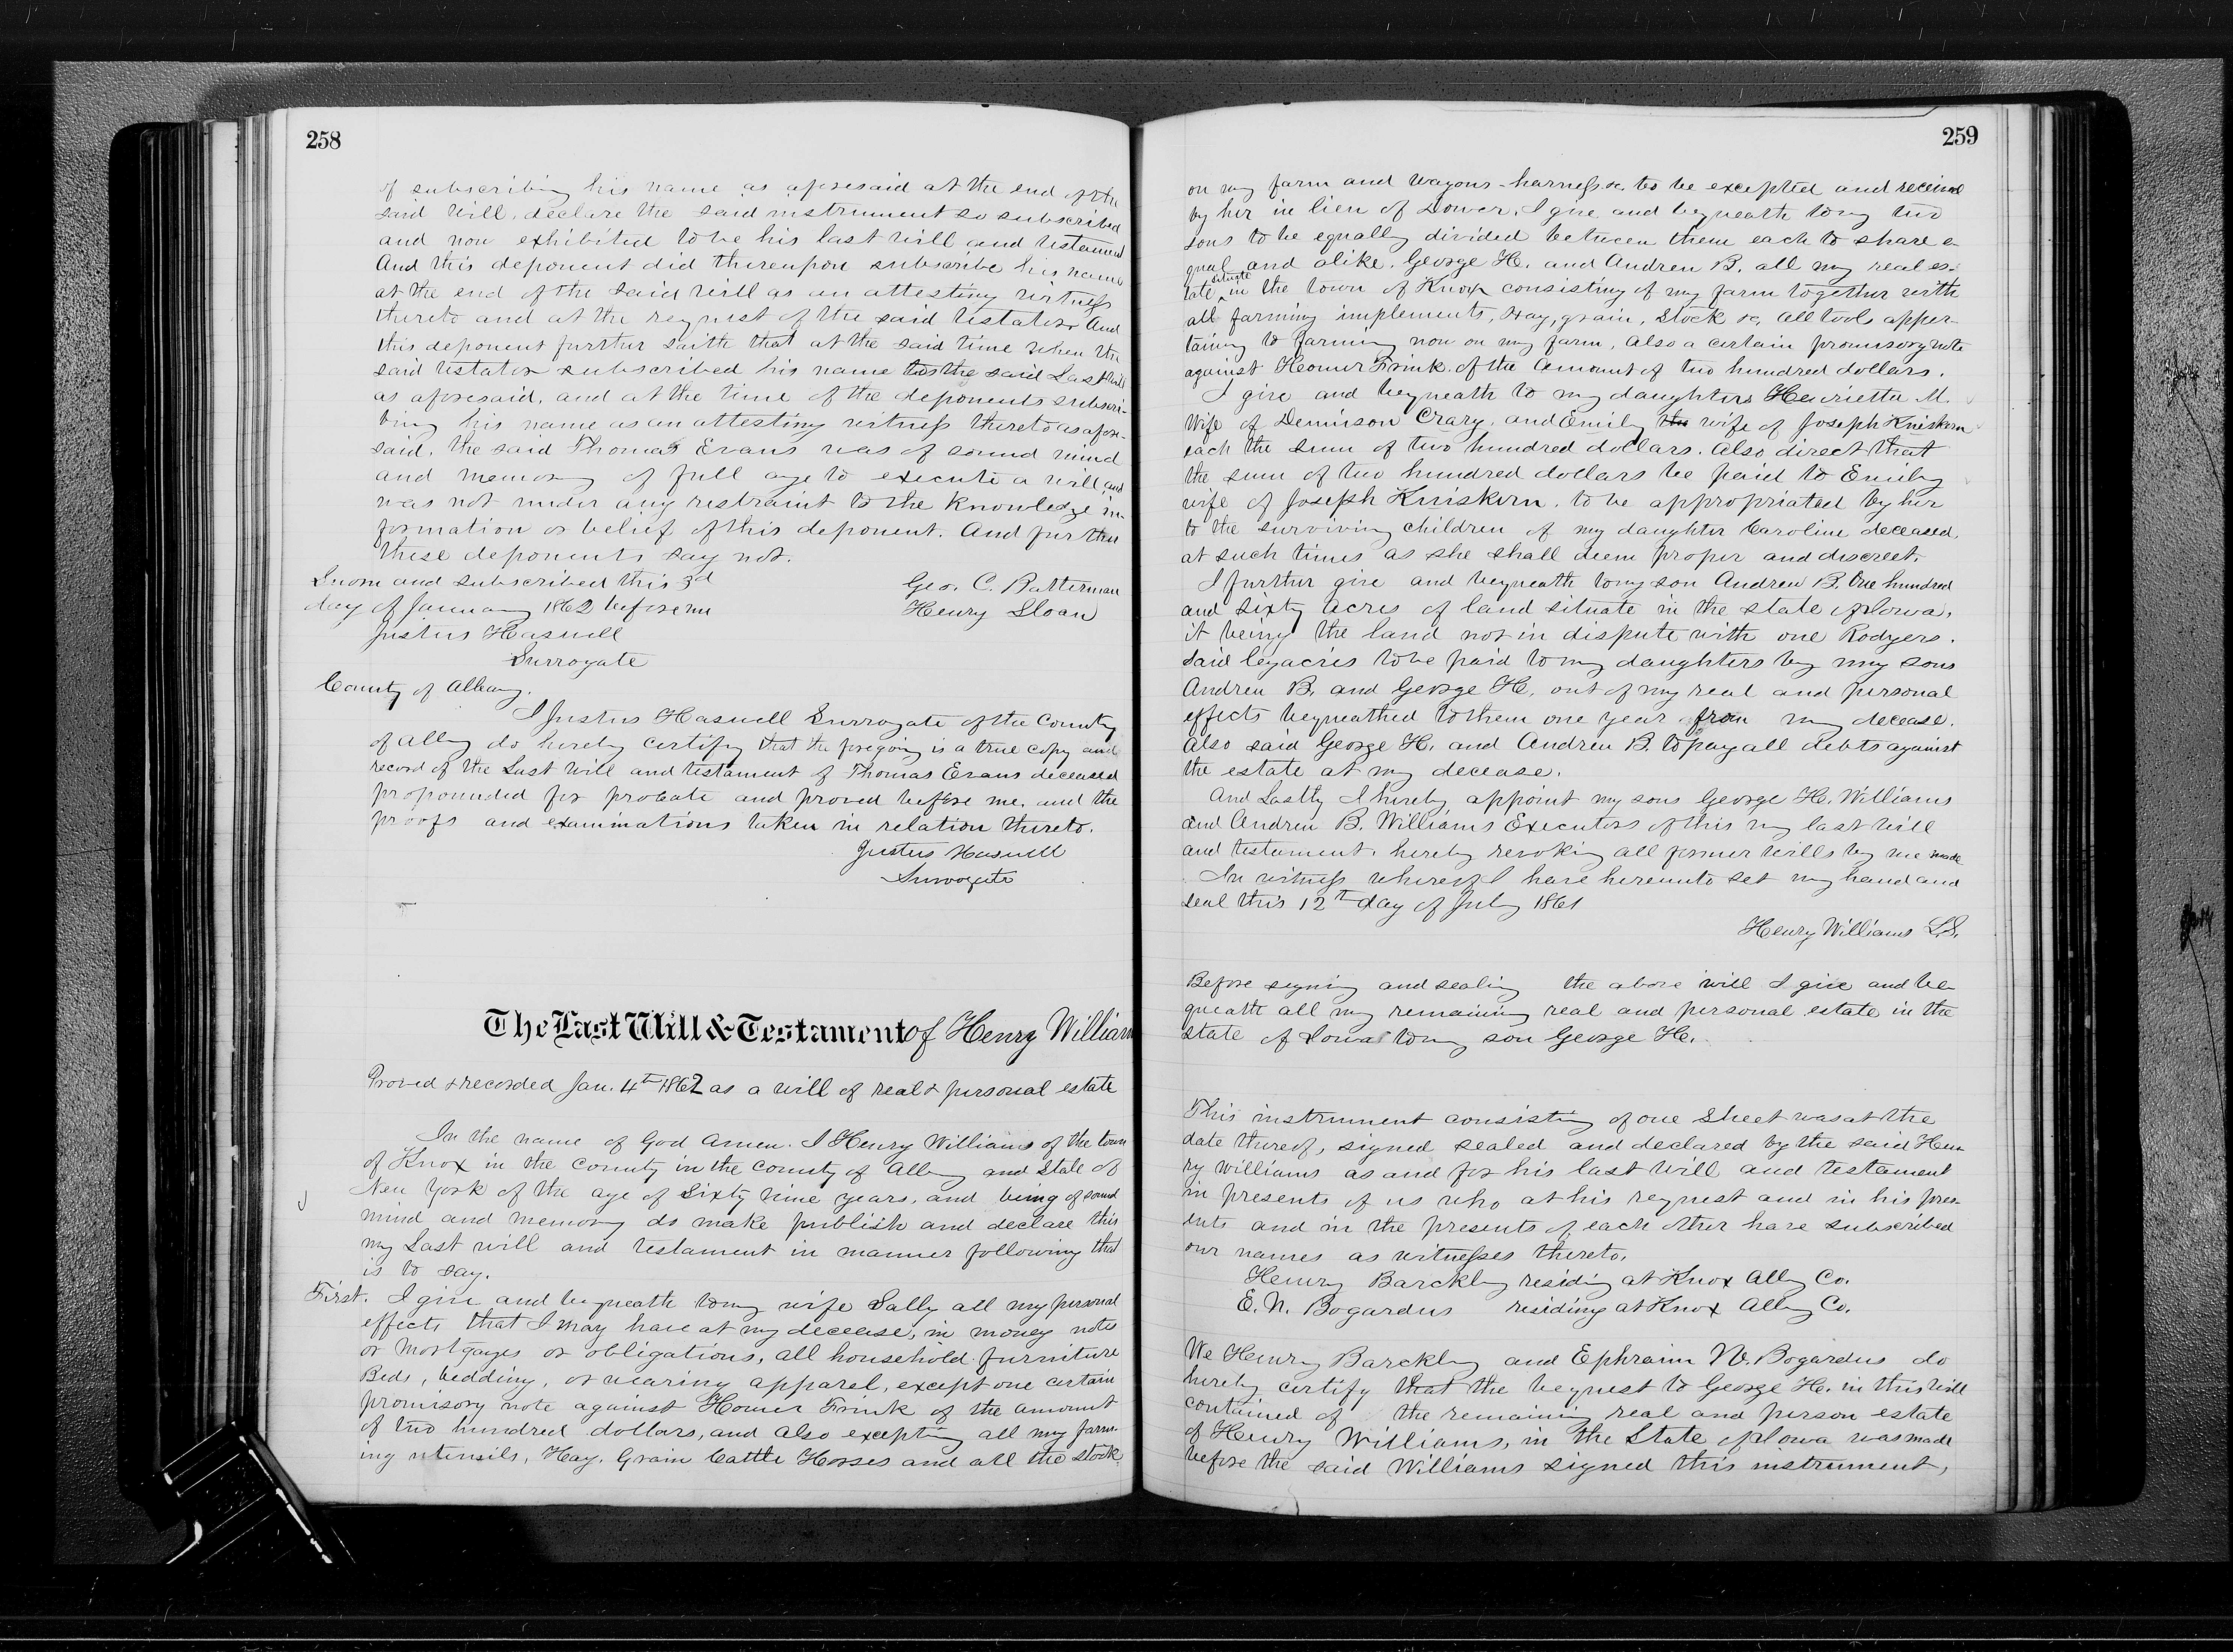 258
of subscribing his name as aforesaid at the end of the
said Will, declare the said instrument so subscribed
and now exhibited to be his last will and testament
And this deponent did thereupon subscribe his name
at the end of the said will as an attesting witness
thereto and at the request of the said testator. And
this deponent further saith that at the said time when the
said testator subscribed his name to the said Last Will
as aforesaid, and at the time of the deponents subscri-
bing his name as an attesting witness thereto as afore-
said, the said Thomas Evans was of sound mind
and memory of full age to execute a will, and
was not under any restraint to the knowledge in-
formation or belief of this deponent. And further
these deponents say not.
Sworn and subscribed this 3d
day of January 1862 before me
Justus Haswell
Surrogate
Geo. C. Batterman
Henry Sloan
County of Albany.
I Justus Haswell Surrogate of the County
of Alby do hereby certify that the foregoing is a true copy and
record of the Last Will and testament of Thomas Evans deceased
propounded for probate and proved before me, and the
proofs and examinations taken in relation thereto.
Justus Haswell
Surrogate
The Last Will & Testament of Henry William
Proved & recorded Jan. 4th 1862 as a will of real & personal estate
In the name of God Amen. I Henry Williams of the town
of Knox in the County in the County of Alby and State of
New York of the age of Sixty nine years, and being of sound
mind and memory do make publish and declare this
my Last will and testament in manner following that
is to say.
First. I give and bequeath to my wife Sally all my personal
effects that I may have at my decease, in money notes
or Mortgages or obligations, all household furniture
Beds, bedding, or wearing apparel, except one certain
promisory note against Homer Frink of the amount
of two hundred dollars, and also excepting all my farm-
ing utensils, Hay, Grain Cattle Horses and all the stock
259
on my farm and wagons - harness &c. to be excepted and received
by her in lieu of Dower, I give and bequeath to my two
sons to be equally divided between them each to share e-
qual and alike. George H. and Andrew B. all my real es-
tate situate in the town of Knox consisting of my farm together with
all farming implements, Hay, grain, Stock &c, all tools apper-
taining to farming now on my farm, Also a certain promisory note
against Homer Frink of the amount of two hundred dollars.
I give and bequeath to my daughters Henrietta M.
Wife of Dennison Crary, and Emily the wife of Joseph Kniskern
each the sum of two hundred dollars. Also direct that
the sum of two hundred dollars be paid to Emily
wife of Joseph Kniskern, to be appropriated by her
to the surviving children of my daughter Caroline deceased,
at such times as she shall deem proper and discreet.
I further give and bequeath to my son Andrew B. One hundred
and sixty acres of land situate in the state of Iowa,
it being the land not in dispute with one Rodgers.
Said legacies to be paid to my daughters by my sons
Andrew B. and George H. out of my real and personal
effects bequeathed to them one year from my decease.
Also said George H. and Andrew B. to pay all debts against
the estate at my decease.
And Lastly I hereby appoint my sons George H. Williams
and Andrew B. Williams Executors of this my last will
and testament, hereby revoking all former wills by me made
In witness whereof I have hereunto set my hand and
seal this 12th day of July 1861
Henry Williams L.S.
Before signing and sealing the above will I give and be-
queath all my remaining real and personal estate in the
state of Iowa to my son George H.
This instrument consisting of one Sheet was at the
date thereof, signed sealed and declared by the said Hen-
ry Williams as and for his last will and testament
in presents of us who at his request and in his pres-
ents and in the presents of each other have subscribed
our names as witnesses thereto.
Henry Barckley residing at Knox Alby Co.
E. N. Bogardus residing at Knox Alby Co.
We Henry Barckley and Ephraim N. Bogardus do
hereby certify that the bequest to George H. in this will
contained of the remaining real and person estate
of Henry Williams, in the State of Iowa was made
before the said Williams signed this instrument,